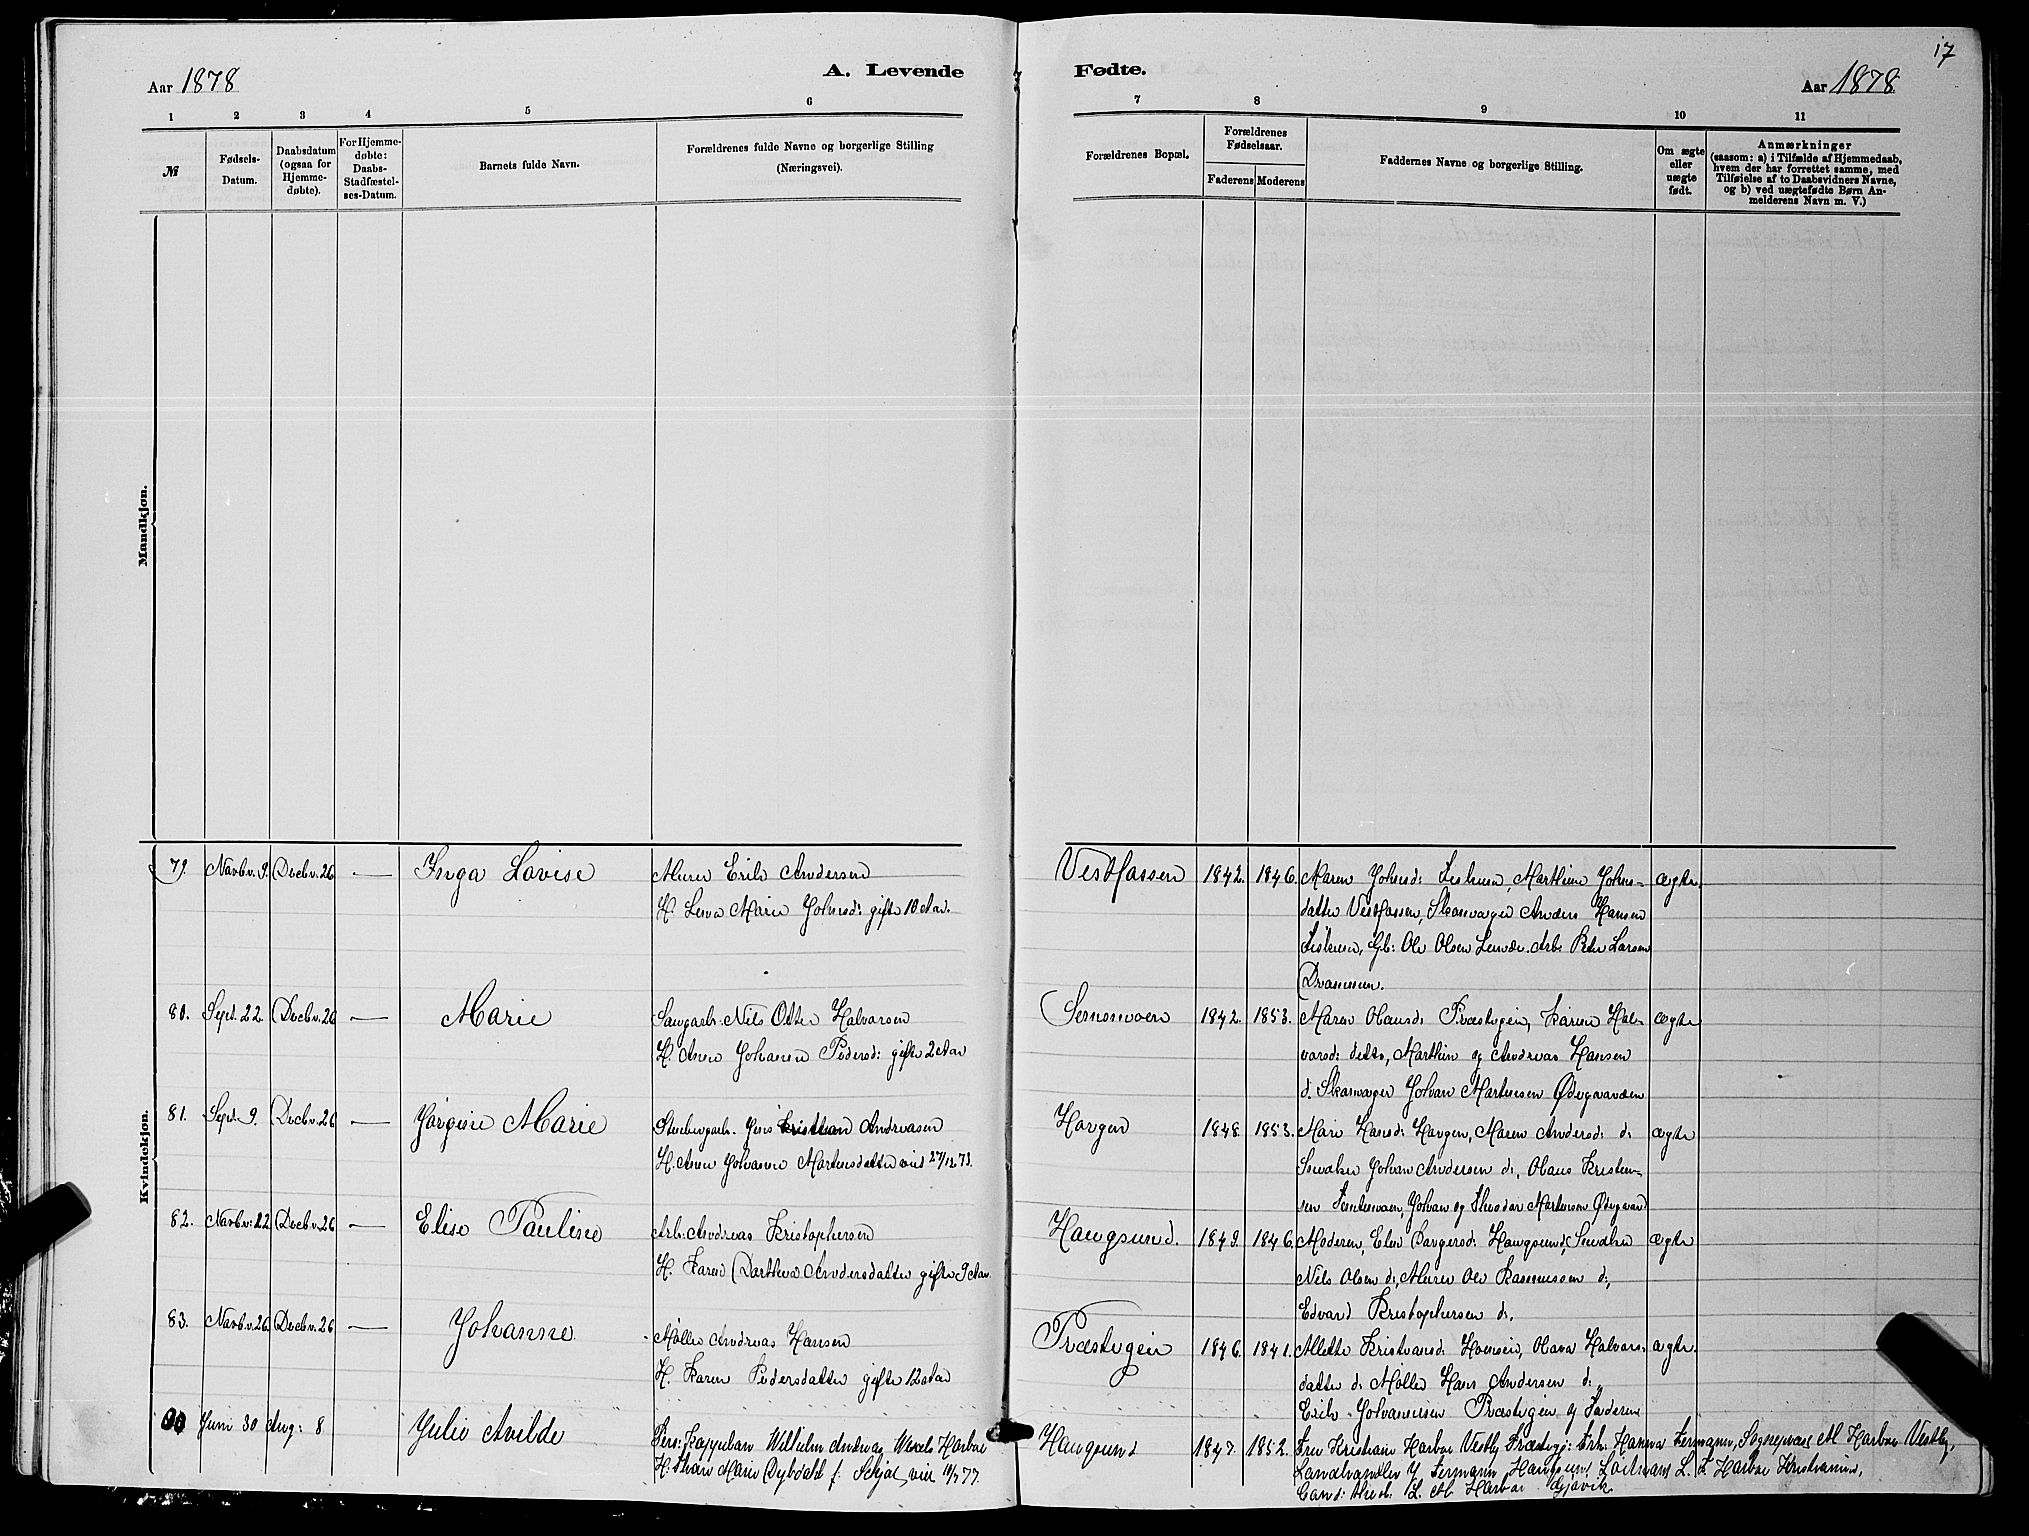 17
Aar 1878
A. Levende
Fødte.
Aar 1878
1 2 3 4 5 6 7 8 9 10 11
№
Fødsels-
Datum.
Daabsdatum
(ogsaa for
Hjemme-
døbte).
For Hjemme-
døbte:
Daabs-
Stadfæstel-
ses-Datum.
Barnets fulde Navn.
Forældrenes fulde Navne og borgerlige Stilling
(Næringsvei).
Forældrenes Bopæl.
Forældrenes
Fødselsaar.
Faderens Moderens
Faddernes Navne og borgerlige Stilling.
Om ægte
eller
uægte
født.
Anmærkninger
(saasom: a) i Tilfælde af Hjemmedaab,
hvem der har forrettet samme, med
Tilføielse af to Daabsvidners Navne,
og b) ved uægtefødte Børn An-
melderens Navn m. V.)
Mandkjøn.
Kvindekjøn.
79. Novbr. 9. Decbr. 26 — Inga Lovise
Murer Erik Andersen
H. Marie Johnsd: gifte 10 Aar.
Vestfossen 1842. 1846.
Maren Johnsd: Marthine Johns-
datter Vestfossen, Anders Hansen
Gb: Ole Olsen Arb. Peder Larsen
Drammen.
ægte
80. Sept. 22. Decbr. 26 — Marie
Saugarb. Nils Otter Halvorsen
H. Anne Johanne Pedersd: gifte 2 Aar
Semsmoen 1842. 1853.
Maren Olausd: Præstegen, Karen Hal-
vorsd: detto, Marthin og Andreas Hansen
d. Johan Martinsen Ødegaarden
ægte
81. Sept. 9. Decbr. 26 — Jørgine Marie
Jens Kristian Andreasen
H. Anne Johanne Martinsdatter viet 27/12 73.
Horgen 1848 1853.
Mari Hansd: Horgen, Maren Andersd: d:
Snedker Johan Andersen d:, Olaus Kristen-
sen Johan og Theodor Martinsen Ødegaard
ægte
82. Novbr. 22 Decbr. 26 — Elise Pauline
Arb. Andreas Kristophersen
H. Karen Dorthea Andersdatter gifte 9 Aar.
Haugsund. 1849. 1846.
Moderen, Elen Haugsund, Snedker
Nils Olsen d:, Murer Ole Rasmussen d:,
Edvard Kristophersen d:,
ægte
83. Novbr. 26. Decbr. 26 — Johanne
Møller Andreas Hansen
H. Karen Pedersdatter gifte 12 Aar
Præstegen 1846. 1841.
Alette Kristiansd: Olava Halvors-
datter d: Møller Hans Andersen d:,
Erik Johannesen Præstegen og Faderen
ægte.
Juni 30 Aug: 8 Julie Avilde
Pers: Kappelan Wilhelm Andreas Wexels Harboe
H. Thora Marie Dybdahl f. viet 11/7 77.
Haugsund 1847. 1852.
Fru Kristiane Harboe Vestby Frk. Hanna Fermann, Sognepræst M. Harboe Vestby,
Landhandler J. Fermann Haugsund, L. F. Harboe Kristiania,
Cand: Med: L. M. Harboe Gjøvik